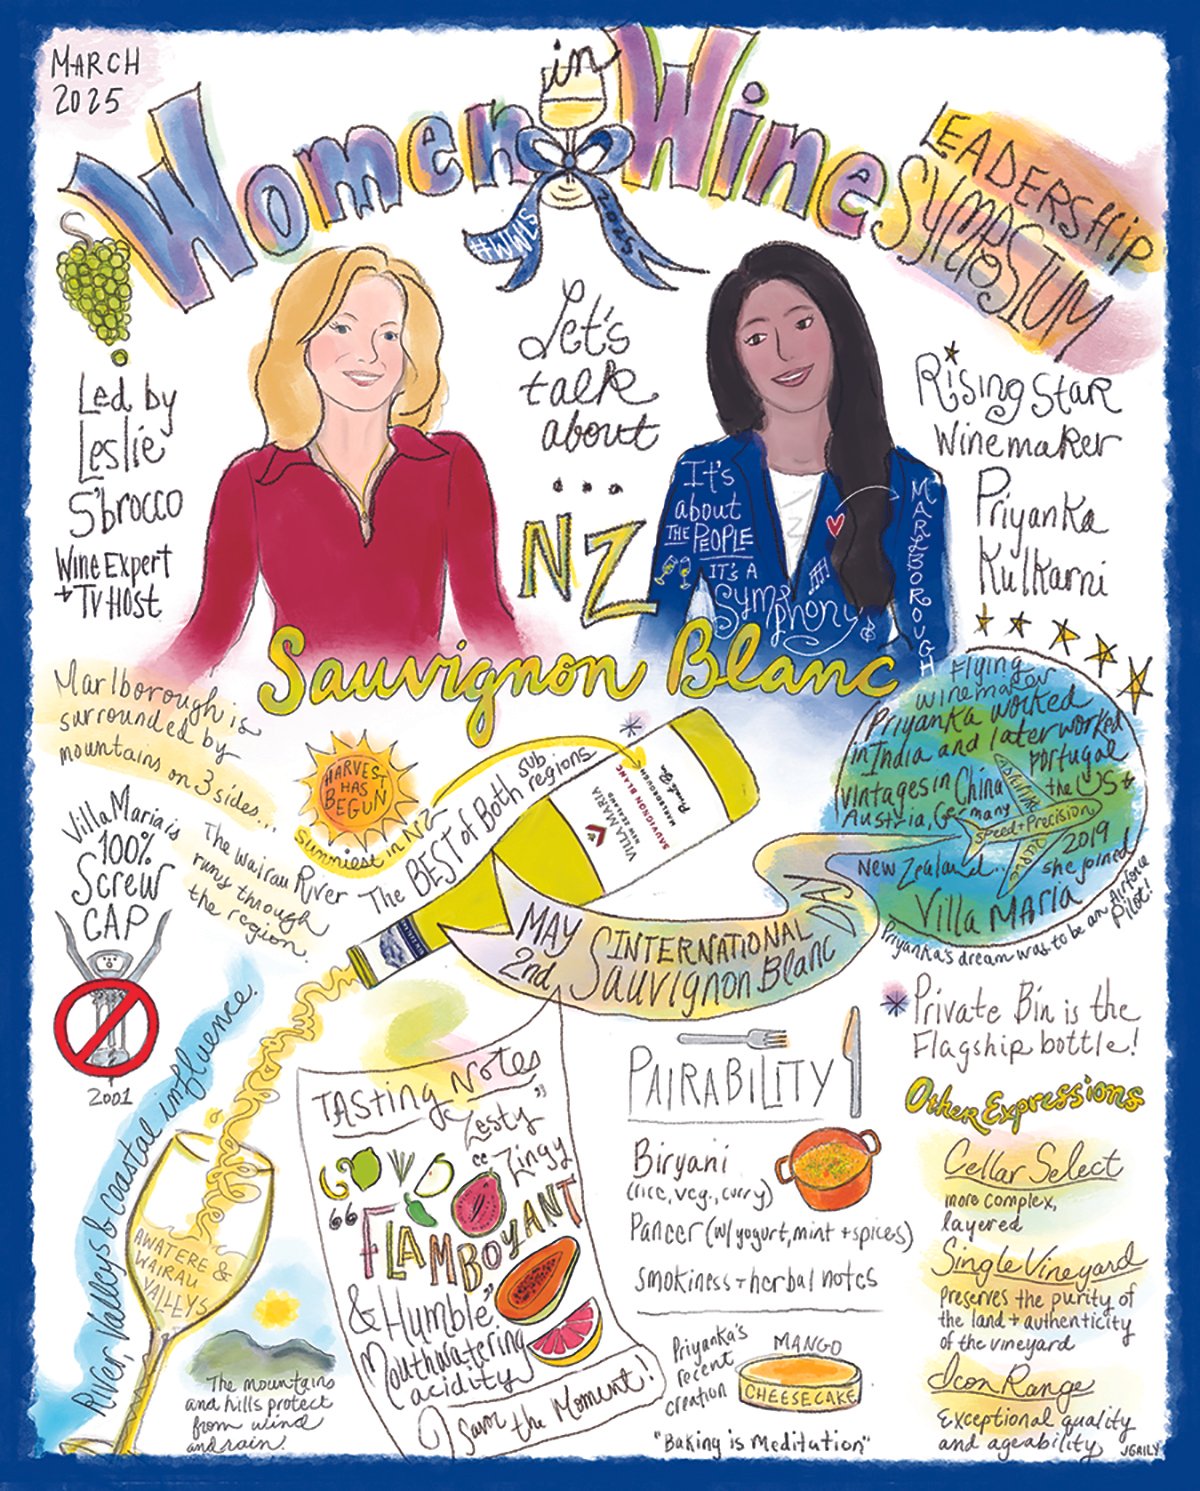 MARCH
2025
Women in Wine
LEADERSHIP
SYMPOSIUM
#WWLS
2025
Led by
Leslie
S'brocco
Wine Expert
+ TV Host
Let's
talk
about
...
NZ
Sauvignon Blanc
It's
about
THE PEOPLE
IT'S A
Symphony
MARLBOROUGH
NZ
Rising Star
Winemaker
Priyanka
Kulkarni
Marlborough is
surrounded by
mountains on 3 sides...
HARVEST
HAS
BEGUN
Sunniest in NZ
The BEST of Both sub
regions
VILLA MARIA
NEW ZEALAND
SAUVIGNON BLANC
MARLBOROUGH
Private Bin
Flying
winemaker
Priyanka worked
in India and later worked
vintages in China Portugal
Austria, Germany the US +
New Zealand... 2019
she joined
Villa Maria
speed + Precision
Priyanka's dream was to be an Airforce
Pilot!
Villa Maria is
100%
Screw
CAP
2001
The Wairau River
runs through
the region.
MAY
2nd
INTERNATIONAL
Sauvignon Blanc
DAY
*Private Bin is the
Flagship bottle!
River, Valleys & Coastal influence.
AWATERE &
WAIRAU
VALLEYS
The mountains
and hills protect
from wind
and rain.
TAsting Notes
"Zesty"
"Zingy
"FLAMBOYANT
& Humble"
Mouthwatering
acidity
Savor the Moment!
PAIRABILITY
Biryani
(rice, veg., curry)
Paneer (w/ yogurt, mint + spices)
smokiness + herbal notes
Priyanka's
recent
creation
MANGO
CHEESECAKE
"Baking is Meditation"
Other Expressions
Cellar Select
more complex,
layered
Single Vineyard
preserves the purity of
the land + authenticity
of the vineyard
Icon Range
Exceptional quality
and ageability
JGRILY